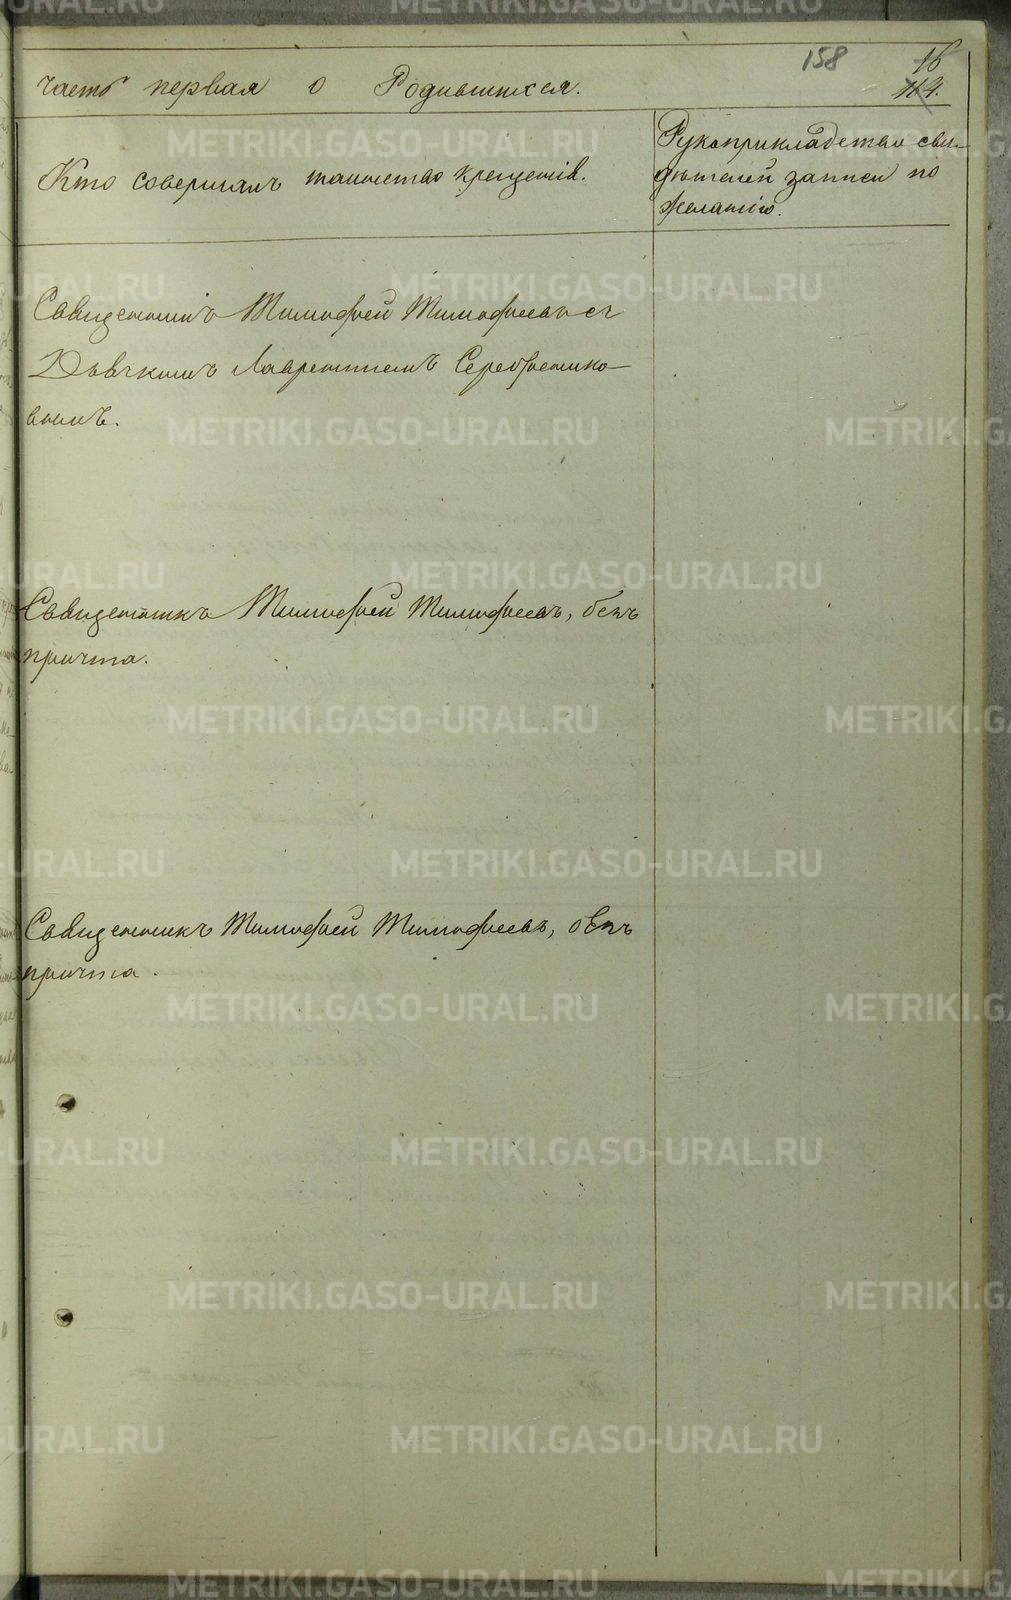 158
16
114.
часть первая о Родившихся.
Кто совершалъ таинство крещенія.
Рукоприкладство сви-
дѣтелей записи по
желанію.
Священникъ Тимофей Тимофеевъ съ
Дьячкомъ Лаврентіемъ Серебренико-
вымъ.
Священникъ Тимофей Тимофеевъ, безъ
причта.
Священникъ Тимофей Тимофеевъ, безъ
причта.
METRIKI.GASO-URAL.RU